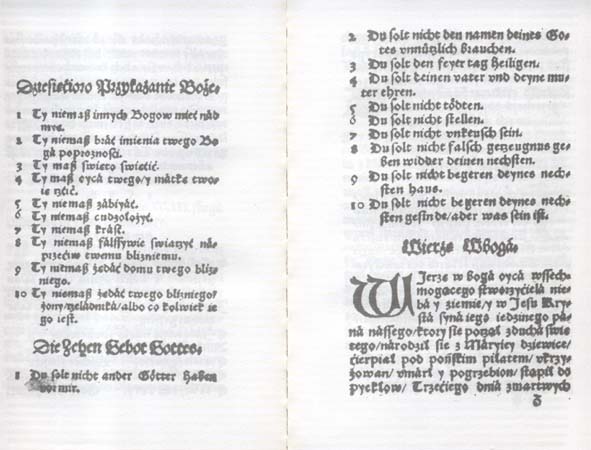 Dziesiećioro Przykazanie Boże.
1 Ty niemaß innych Bogow mieć nád
mye.
2 Ty niemaß bráć imienia twego Bo
gá poproznosći.
3 Ty maß swieto swiećić.
4 Ty maß oycá twego/ y mátke two
ie czćić.
5 Ty niemaß zábiyáć.
6 Ty niemaß cudzołożyć.
7 Ty niemaß kráść.
8 Ty niemaß fálssywie swiadczyć ná
przećiw twemu blizniemu.
9 Ty niemaß żedáć domu twego bliz
niego.
10 Ty niemaß żedáć twego blizniego/
żony/czeladniká/albo co kolwiek ie
go iest.
Die Zehen Gebot Gottes.
1 Du solt nicht ander Götter haben
vor mir.
2 Du solt nicht den namen deines Go
tes vnnützlich brauchen.
3 Du solt den feyer tag heiligen.
4 Du solt deinen vater vnd deyne mu
ter ehren.
5 Du solt nicht tödten.
6 Du solt nicht stellen.
7 Du solt nicht vnkeusch sein.
8 Du solt nicht falsch gerzeugnus ge
ben widder deinen nechsten.
9 Du solt nicht begeren deynes nech
sten haus.
10 Du solt nicht begeren deynes nech
sten gesinde/ader was sein ist.
Wierze Wbogá.
WIerze w bogá oycá wssech-
mogacego stworzyćielá nie
bá y ziemie/y w Jesu Kry
stá syná iego iedinego pá
ná nássego/ktory sie począł z duchá swie
tego/národził sie z Máryiey dziewice/
ćierpiał pod ponskim piłatem/ vkrzy
żowan/ vmárł y pogrzebion/ stąpił do
pyekłow/ Trzećiego dniá zmartwych